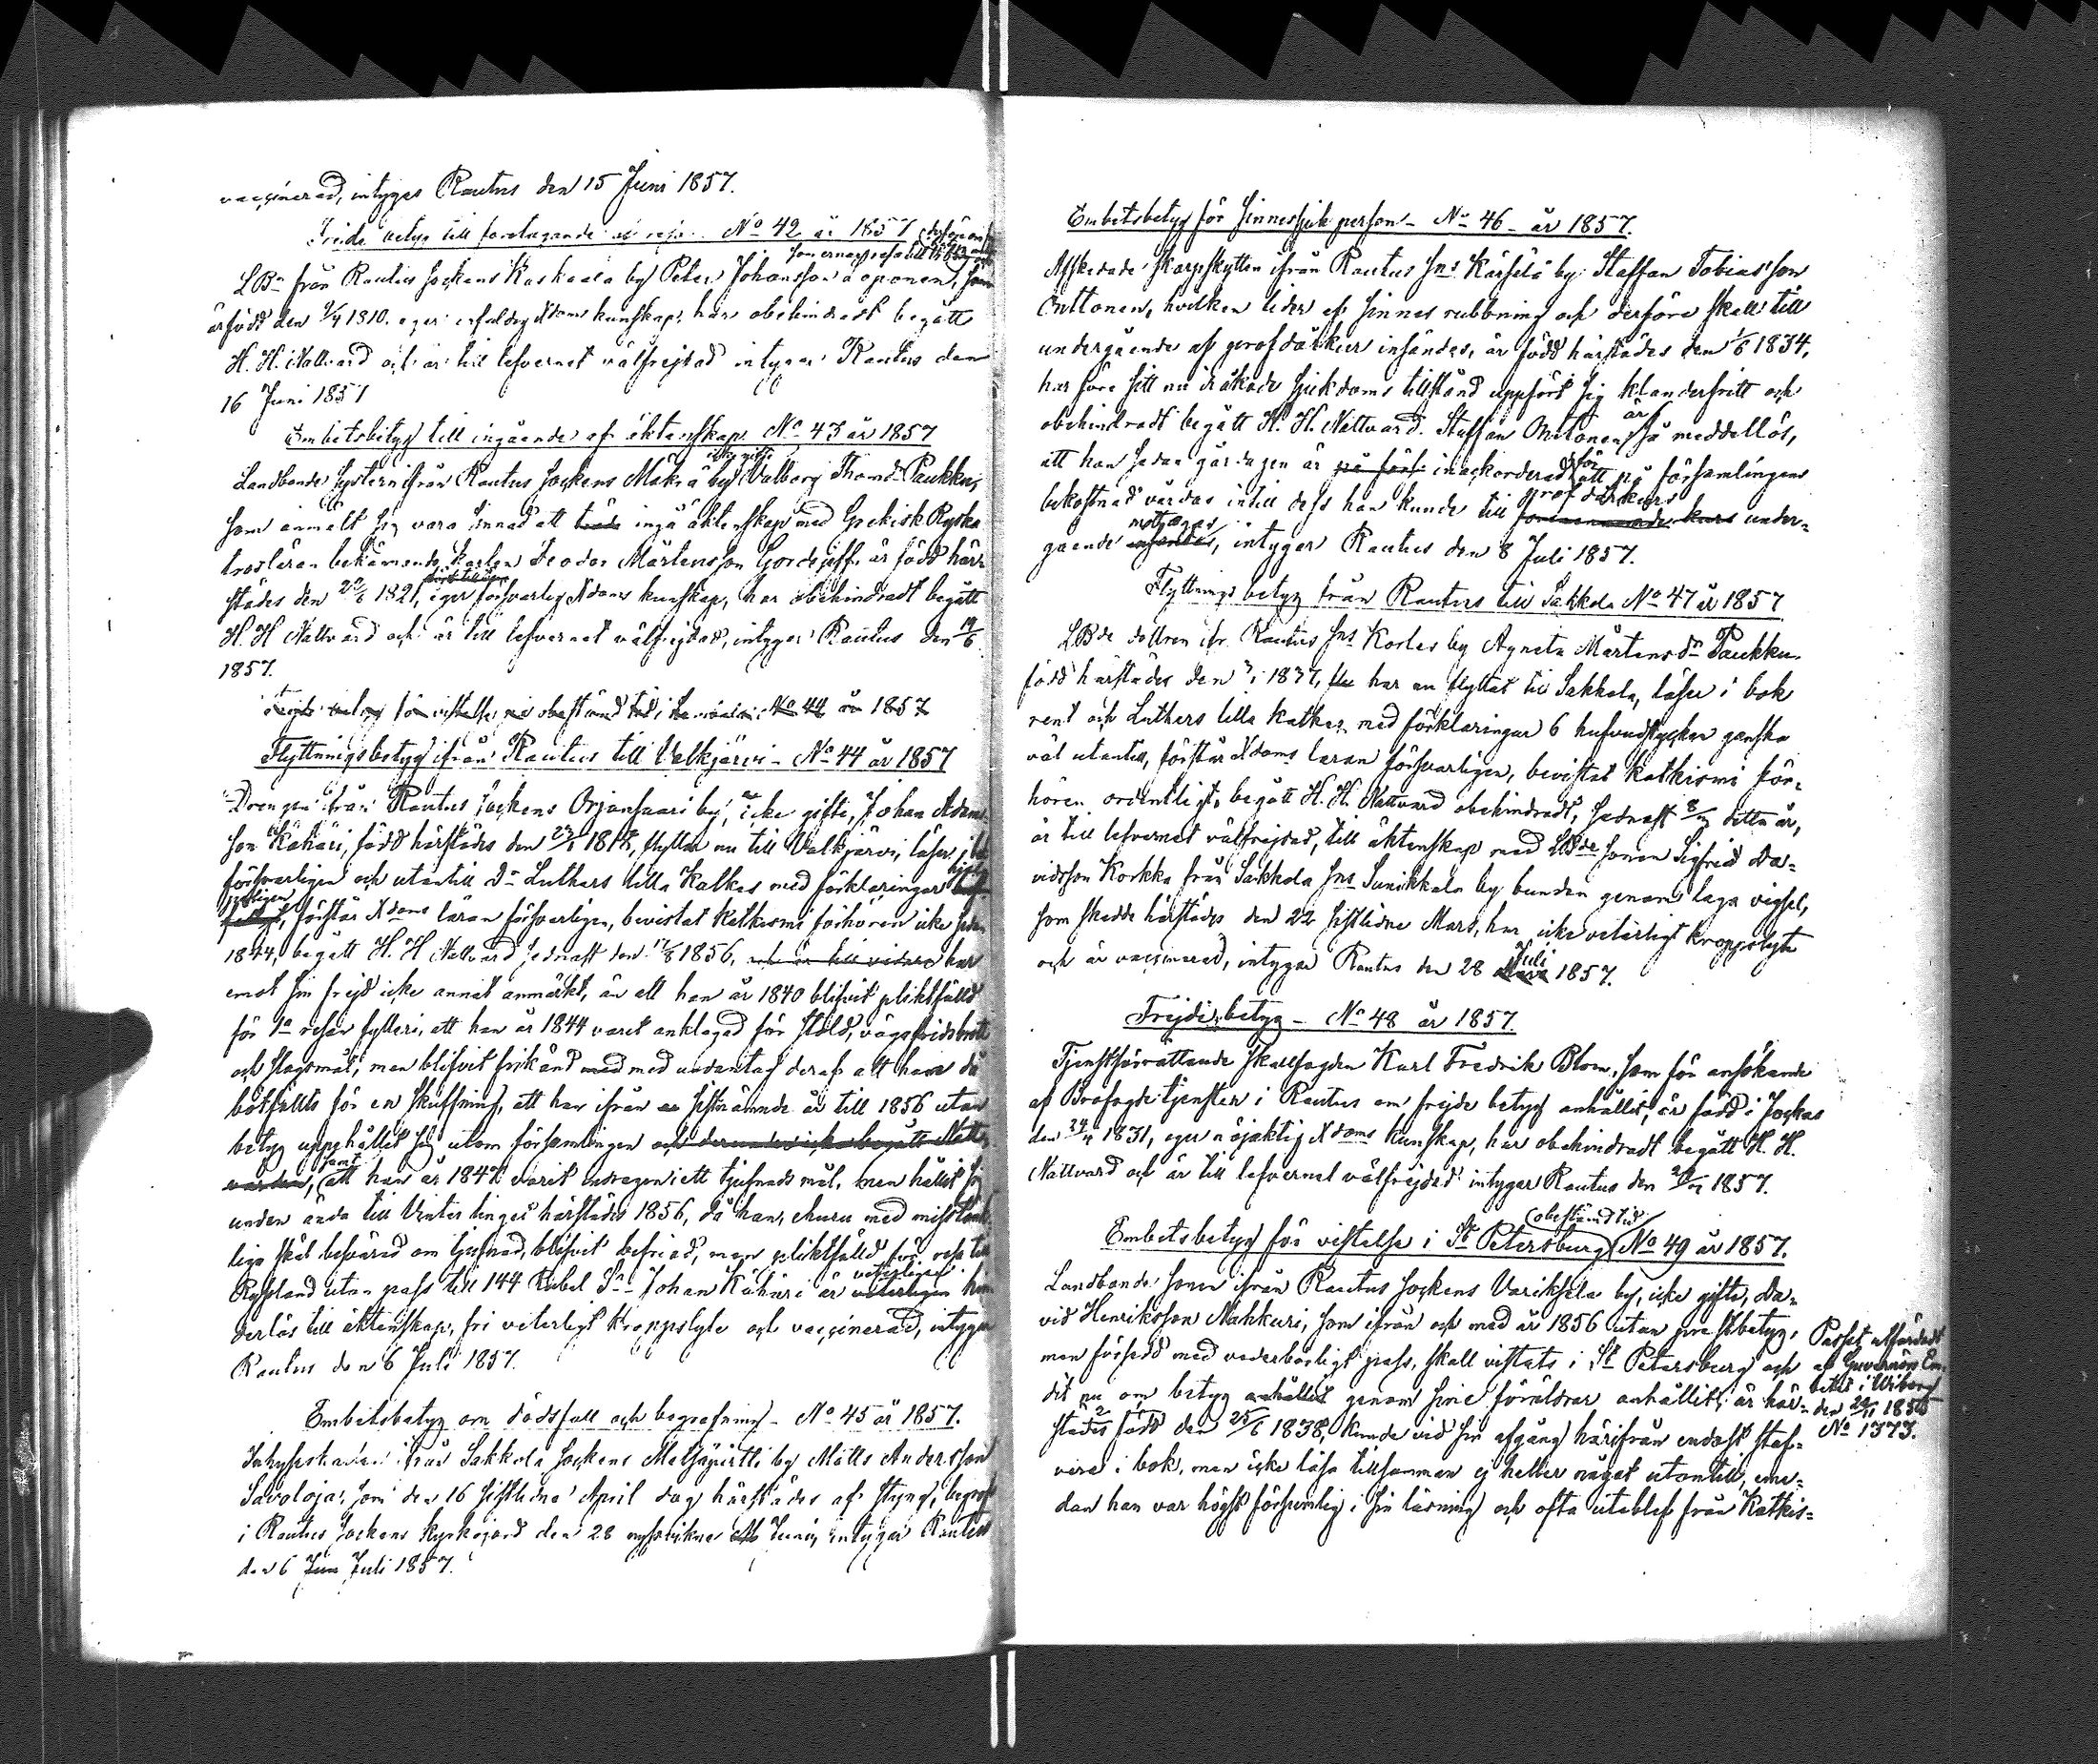 vaccinerad, intygas Rautus den 15 Juni 1857.
Frejde betyg till företagande af resa. No 42 år 1857
som ernar resa till
LBn från Rautus Sockens Raskala by Peter Johansson
är född den 9/4 1810. eger enfaldig Xdoms kunskap, har obehindradt begått
H. H. Nattvard och är till lefvernet välfrejdad intygar Rautus den
16 Juni 1857
Embetsbetyg till ingående af äktenskap No 43 år 1857
icke gifta
Landbonde systern ifrån Rautus Sockens Mäkrä by Valborg Thomsdr Paukku,
som anmält sig vara sinnad att träda ingå äktenskap med Grekisk Ryska
trosläran bekännande karlen Feodor Mårtensson Gordejeff är född här-
städes den 22/6 1821, eger försvarlig Xdoms kunskap, har obehindradt begått
H. H Nattvard och är till lefvernet välfrejdad, intygar Rautus den 19/6
1857.
No 44 år 1857
Flyttningsbetyg ifrån Rautus till Valkjärvi - No 44 år 1857
Drengen ifrån Rautus Sockens Orjansaari by, icke gifte, Johan Adams-
son Kähäri, född härstädes den flyttar nu till Valkjärvi, läser i bok
försvarligen och utantill Dr Luthers lilla Katkes med förklaringar
förstår Xdoms läran försvarligen, bevistat Katkismi förhören icke sedan
1844, begått H. H Nattvard sednast den 17/8 1856, och är till vidare har
emot sin frejd icke annat anmärkt, än att han år 1840 blifvit pliktfälld
för 1a resan fylleri, att han år 1844 varit anklagad för stöld, vägafridsbrott
och slagsmål, men blifvit frikänd med med undantag deraf att han då
botfällts för en skuffning, att han ifrån sistnämnde år till 1856 utan
betyg uppehållit sig utom församlingen och derunder icke begått Natt-
varden, samt att han år 184 varit indragen i ett tjufnads mål, men hållit sig
undan ända till Vinter tinget härstädes 1856, då han, ehuru med misstänk-
liga skäl besvärad om tjufnad, blifvit befriad, men pliktfälld för resa till
Ryssland utan pass till 144 Rubel Sr. Johan Kähäri är veterligen hin-
derlös till äktenskap, fri veterligt kroppslyte och vaccinerad, intygar
Rautus den 6 Juli 1857.
Embetsbetyg om dödsfall och begrafning - No 45 år 1857.
Inhysestan ifrån Sakkola Sockens Metsäpirtti by Matts Andersson
Savolaja, som den 16 sistlidne April dog härstädes af styng, begrofs
i Rautus Sockens kyrkogård den 28 nyssvikne Juni, intygar Rautus
den 6 Juni Juli 1857.
Embetsbetyg för sinnessjuk person - No 46 - år 1857.
Afskedade skarpskytten ifrån Rautus Sns Kärsälä by Staffan Tobiasson
Onttonen, hvilken lider af sinnes rubbning och derföre skall till
undergående af prof dårkur insändas, är född härstädes den 1/6 1834,
har före sitt nu iråkade sjukdoms tillstånd uppfört sig klanderfritt och
obehindradt begått H. H. Nattvard. Staffan Onttonen är så meddellös,
att han sedan gårdagen är på förs inackorderad för att på församlingens
bekostnad vårdas intill dess han kunde till prof dårkurs under-
gående mottagas insändas, intygar Rautus den 8 Juli 1857.
Flyttnings betyg från Rautus till Sakkola No 47 år 1857
LBde dottren ifr. Rautus Sns Korles by Agneta Mårtensdr Paukku
född härstädes den 1837, har nu flyttat till Sakkola, läser i bok
rent och Luthers lilla Katkes med förklaringar 6 hufvudstycken ganska
väl utantill, förstår Xdoms läran försvarligen, bevistat Katkismi för-
hören ordentligt, begått H. H. Nattvard obehindradt, sednast 8/3 detta år,
är till lefvernet välfrejdad, till äktenskap med LBde sonen Sigfrid Da-
vidsson Korkka från Sakkola Sns Sunikkala by bunden genom laga vigsel,
som skedde härstädes den 22 sistlidne Mars, har icke veterligt kroppslyte
och är vaccinerad, intygar Rautus den 28 Juli 1857.
Frejdebetyg - No 48 år 1857.
Tjenstförrättande Skallfogden Karl Fredrik Blom, som för ansökande
af Brofogde tjensten i Rautus om frejde betyg anhållit, är född i Jockas
den 29/4 1831, eger nöjaktig Xdoms kunskap, har obehindradt begått H. H.
Nattvard och är till lefvernet välfrejdad intygar Rautus den 29/7 1857.
Embetsbetyg för vistelse i St Petersburg (obestämd tid) No 49 år 1857.
Landbonde sonen ifrån Rautus Sockens Varikselä by, icke gifte, Da-
vid Henriksson Nakkari, som ifrån och med år 1856 utan prestbetyg,
men försedd med vederbörligt pass, skall vistats i St Petersburg och
dit nu om betyg anhållit genom sine föräldrar anhållit, är här-
städes född den 25/6 1838, kunde vid sin afgång härifrån endast staf-
vera i bok, men icke läsa tillsamman ej heller något utantill, eme-
dan han var högst försumlig i sin läsning och ofta uteblef från Katkis-
Passet utfärdadt
af Guvernörs Em-
betet i Wiborg
den 24/11 1856
No 1373.